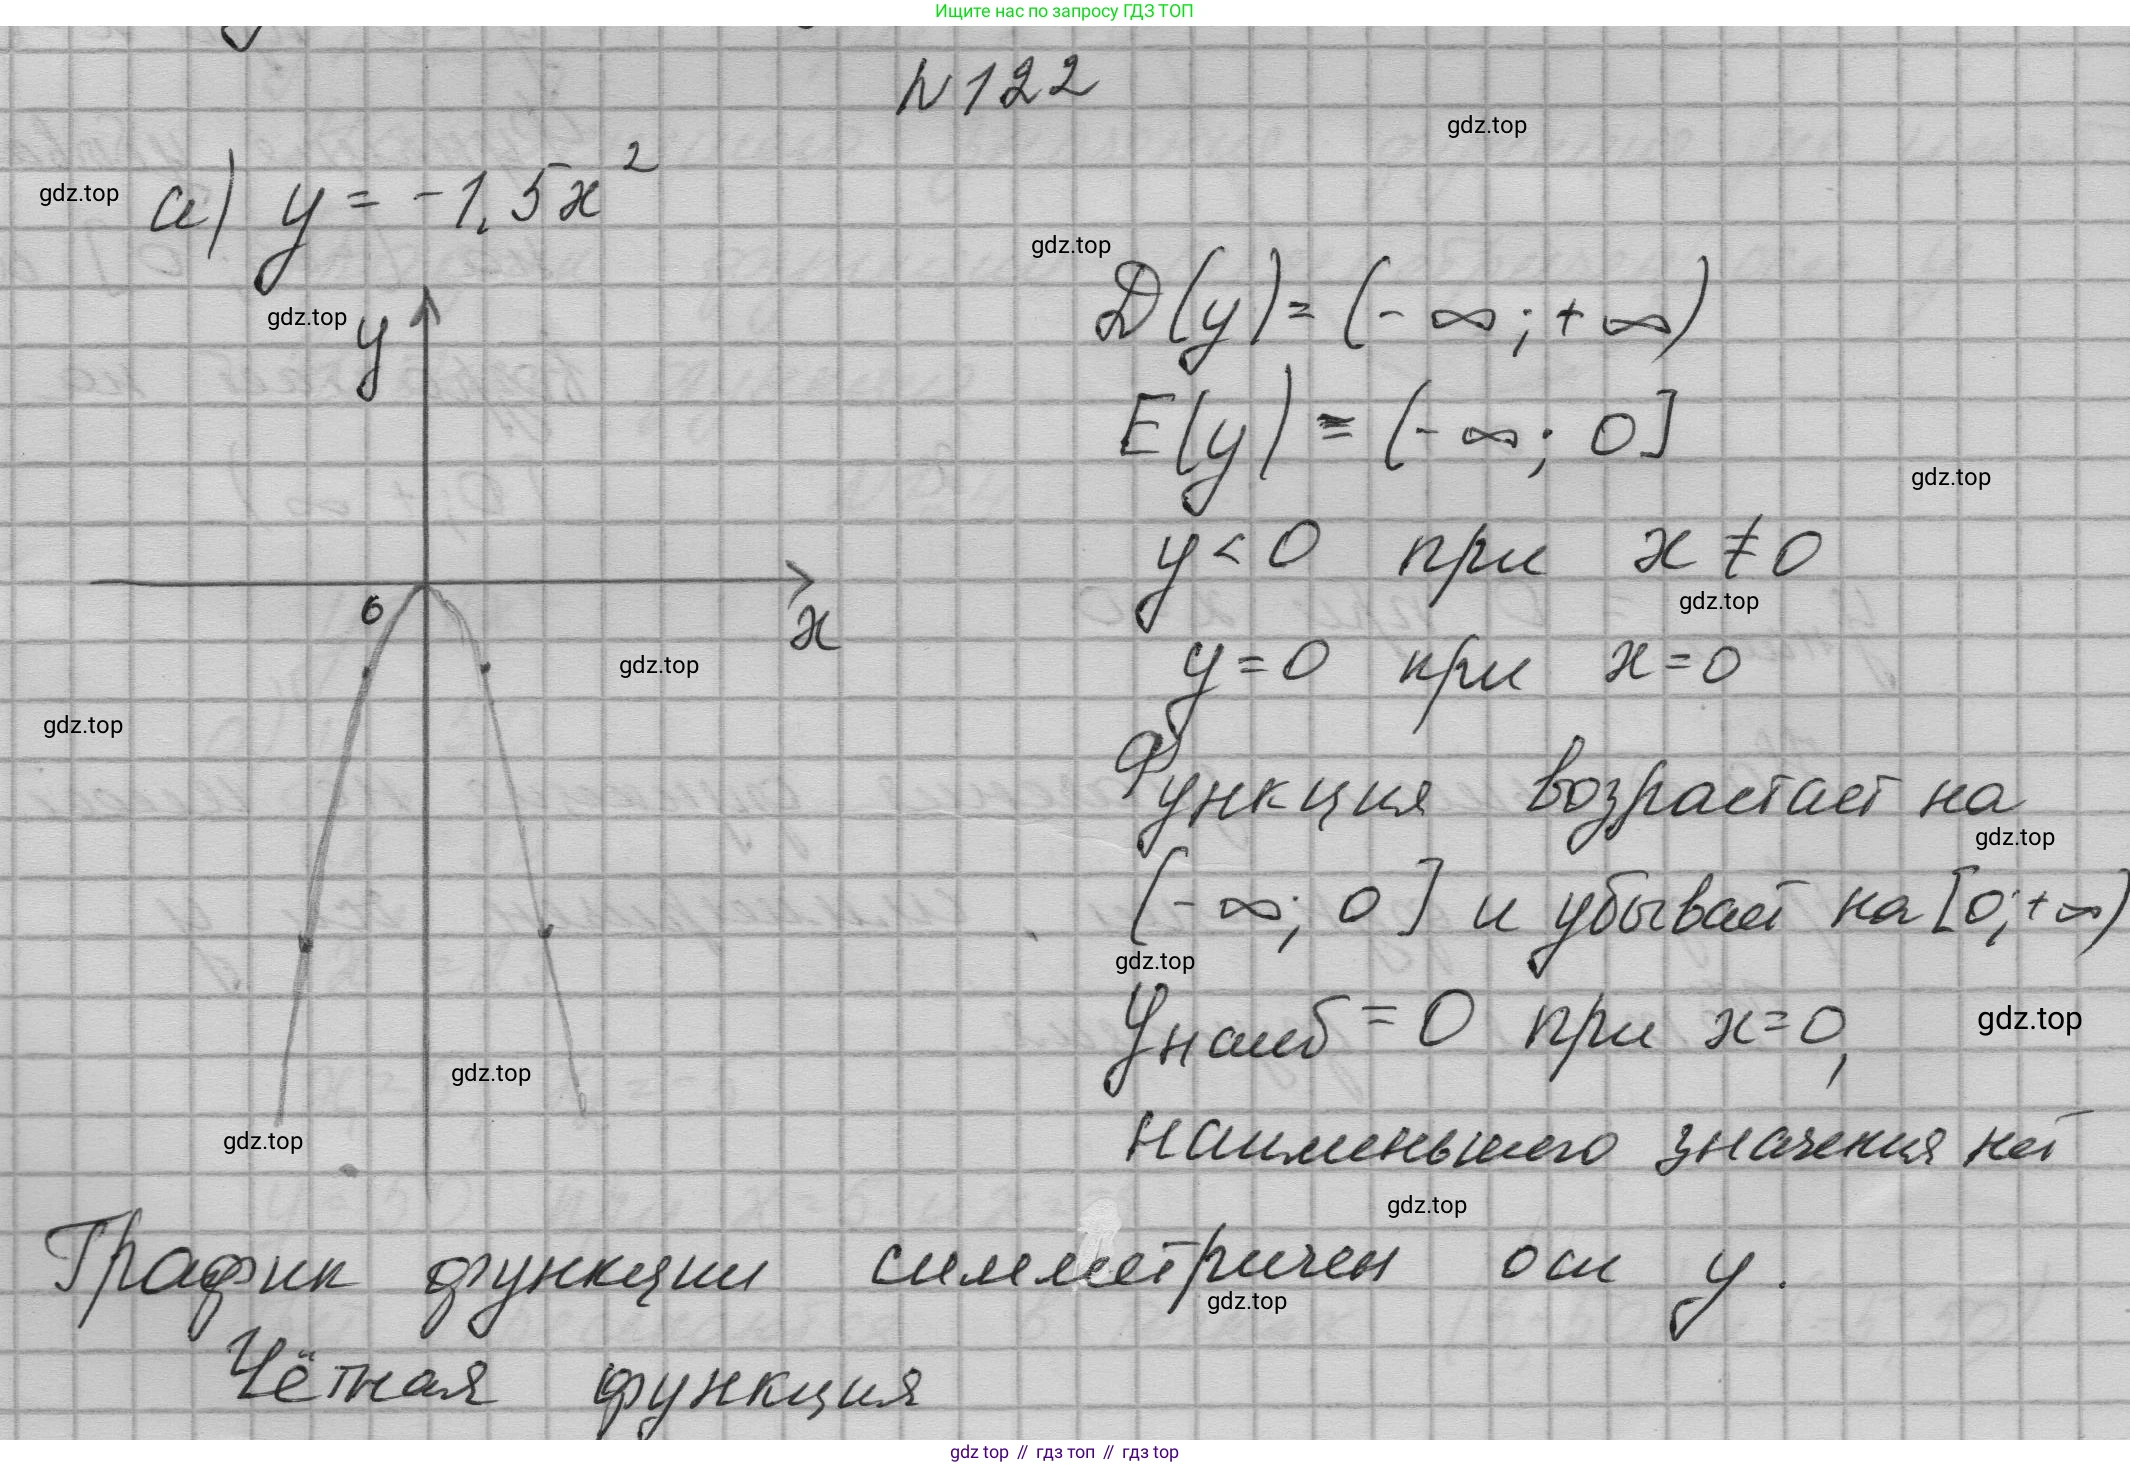 Ищите нас по запросу ГДЗ ТОП
N 122
gdz.top
а) y = -1,5x²
gdz.top
gdz.top
D(y) = (-∞; +∞)
gdz.top
y
E(y) = (-∞; 0]
gdz.top
y < 0 при x ≠ 0
gdz.top
0
x
gdz.top
y = 0 при x = 0
gdz.top
Функция возрастает на
gdz.top
(-∞; 0] и убывает на [0; +∞)
gdz.top
yнаиб = 0 при x = 0,
gdz.top
gdz.top
наименьшего значения нет
gdz.top
gdz.top
График функции симметричен оси y.
gdz.top
Чётная функция
gdz top // гдз топ // гдз top